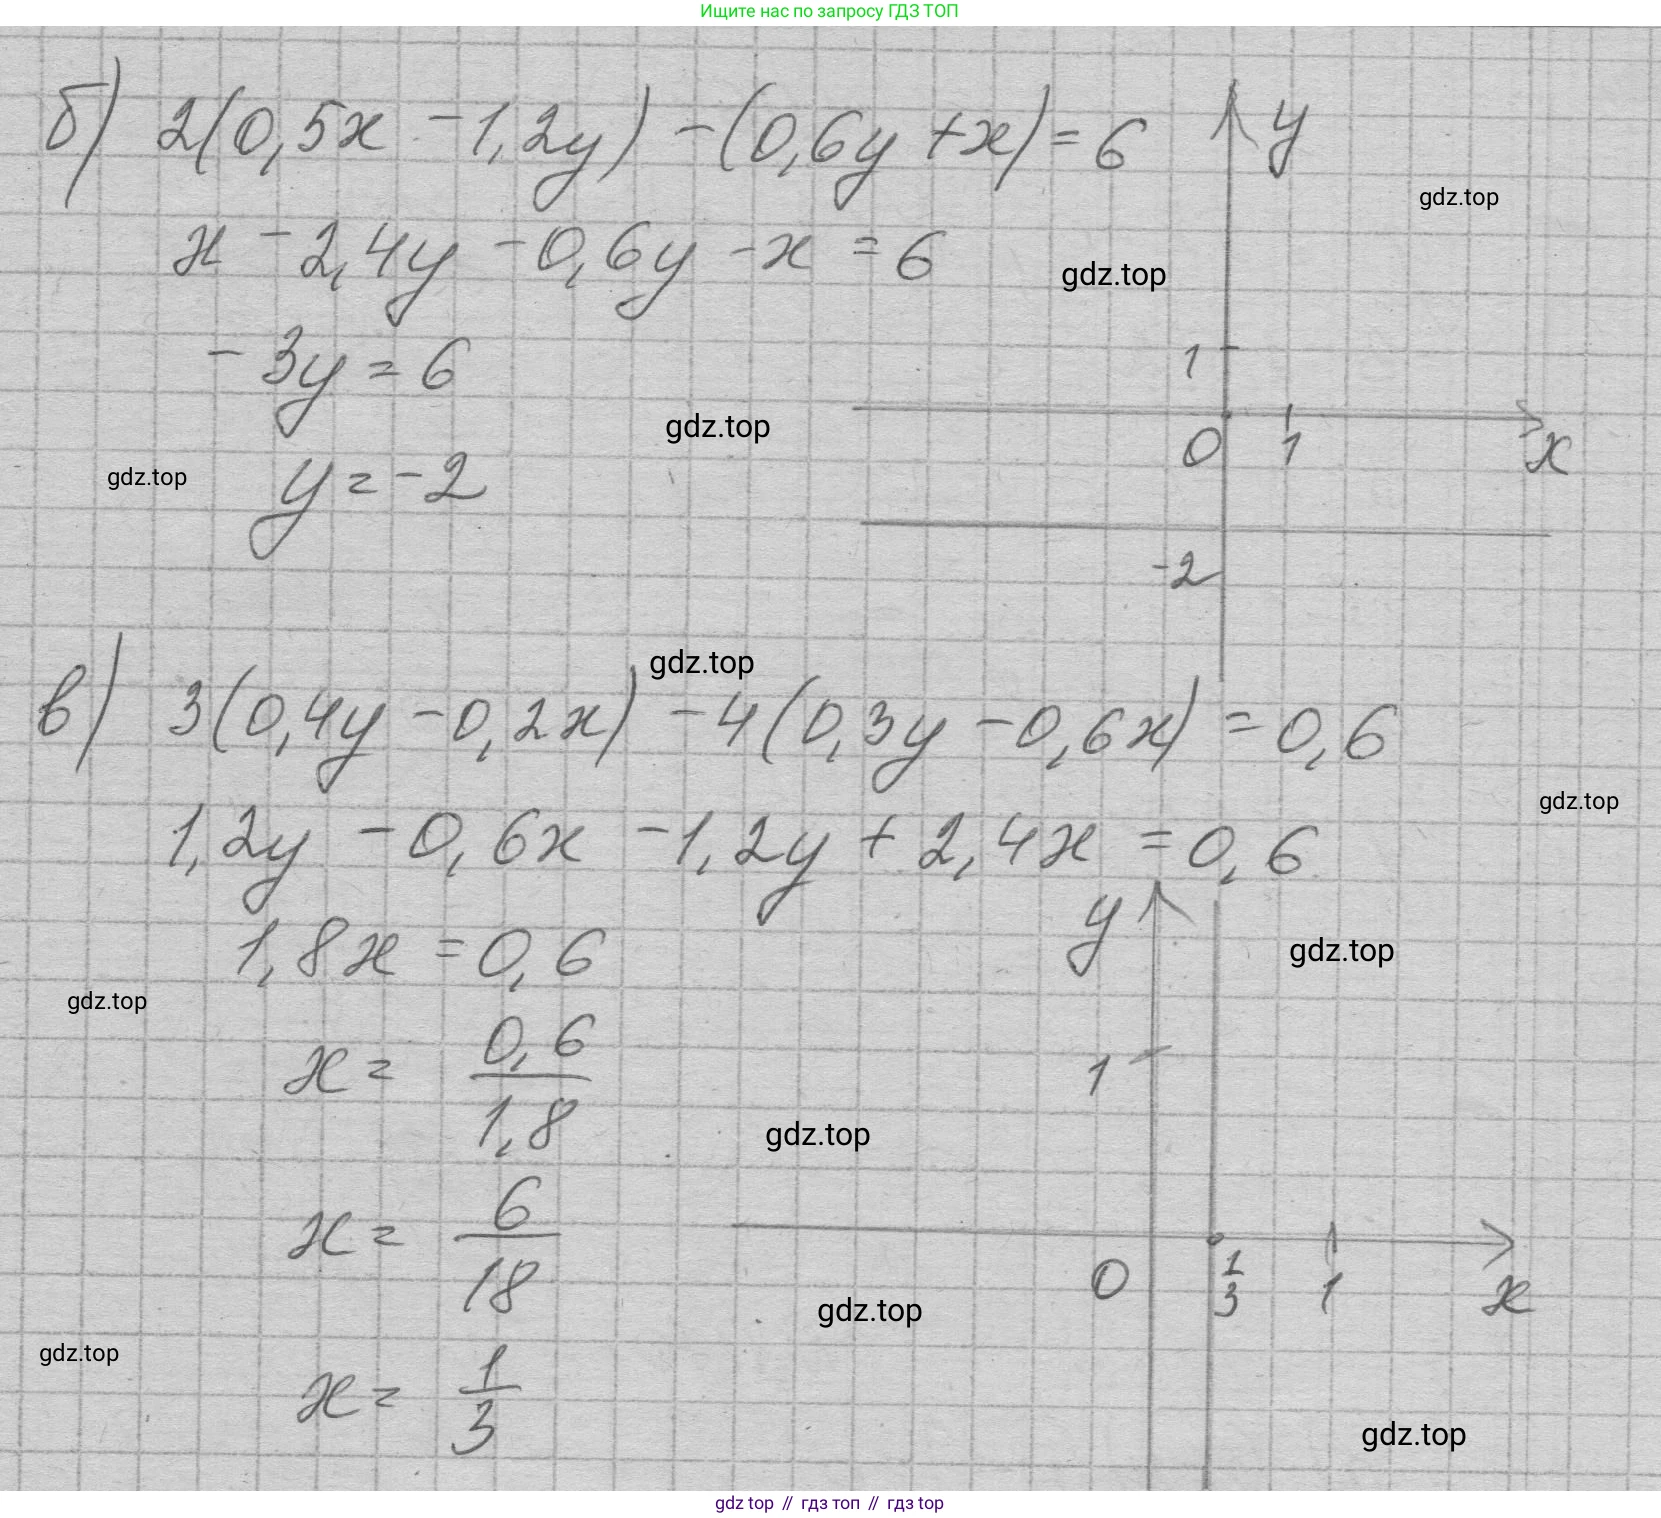 Ищите нас по запросу ГДЗ ТОП
б) 2(0,5x - 1,2y) - (0,6y + x) = 6
y
gdz.top
x - 2,4y - 0,6y - x = 6
gdz.top
-3y = 6
1
gdz.top
0 1 x
gdz.top
y = -2
-2
gdz.top
в) 3(0,4y - 0,2x) - 4(0,3y - 0,6x) = 0,6
gdz.top
1,2y - 0,6x - 1,2y + 2,4x = 0,6
y
gdz.top
1,8x = 0,6
gdz.top
x = 0,6/1,8
1
gdz.top
x = 6/18
0 1/3 1 x
gdz.top
gdz.top
x = 1/3
gdz.top
gdz top // гдз топ // gdz top